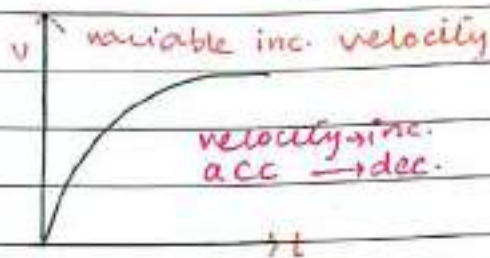 v variable inc. velocity
velocity→inc.
acc → dec.
t